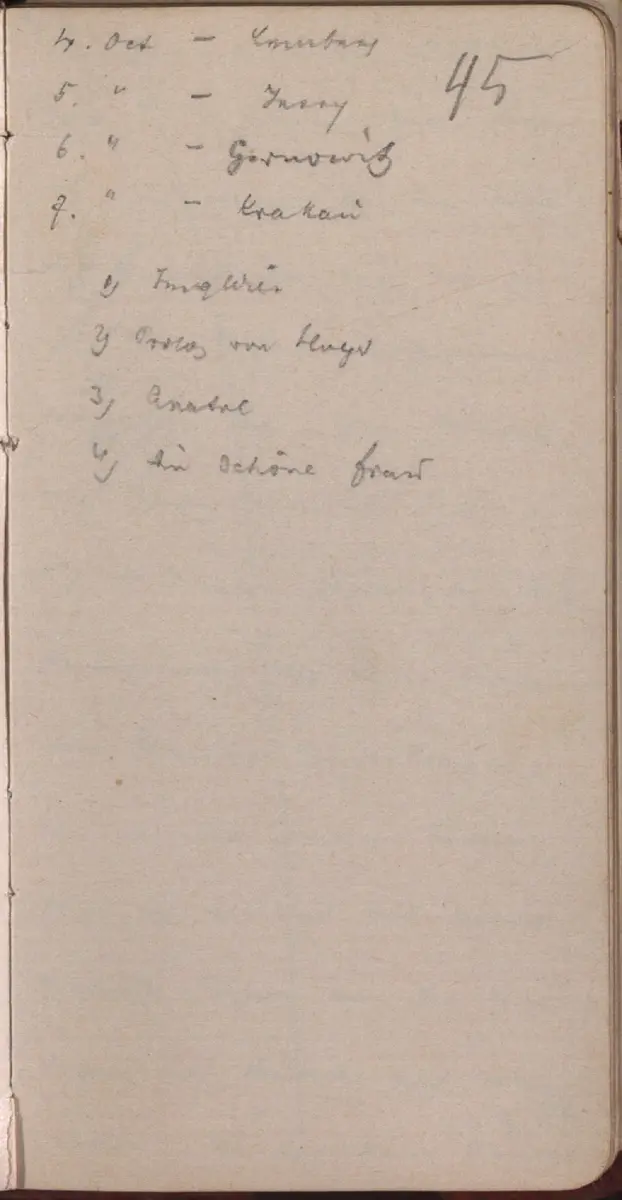 4. Oct – Lemberg
45
5. " – Jassy
6. " – Czernowitz
7. " – Krakau
1)
2) Prolog von
3) Anatol
4) Die schöne Frau